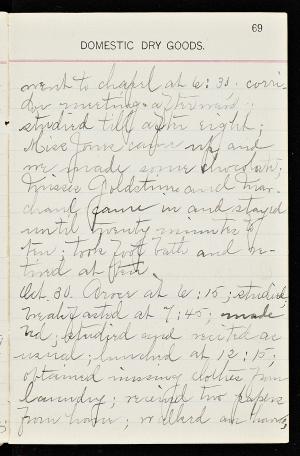 69
DOMESTIC DRY GOODS.
went to chapel at 6:30. corri-
dor meeting afterward;
studied till after eight;
Miss Jones came up and
we made some chocolate;
Misses Goldstine and Mar-
chand came in and stayed
until twenty minutes of
ten; took foot bath and re-
tired at ten.
Oct. 30. Arose at 6:15; studied;
breakfasted at 7:45; made
bed; studied and recited as
usual; lunched at 12:15;
obtained missing clothes from
laundry; received two papers
from home; walked an hour;